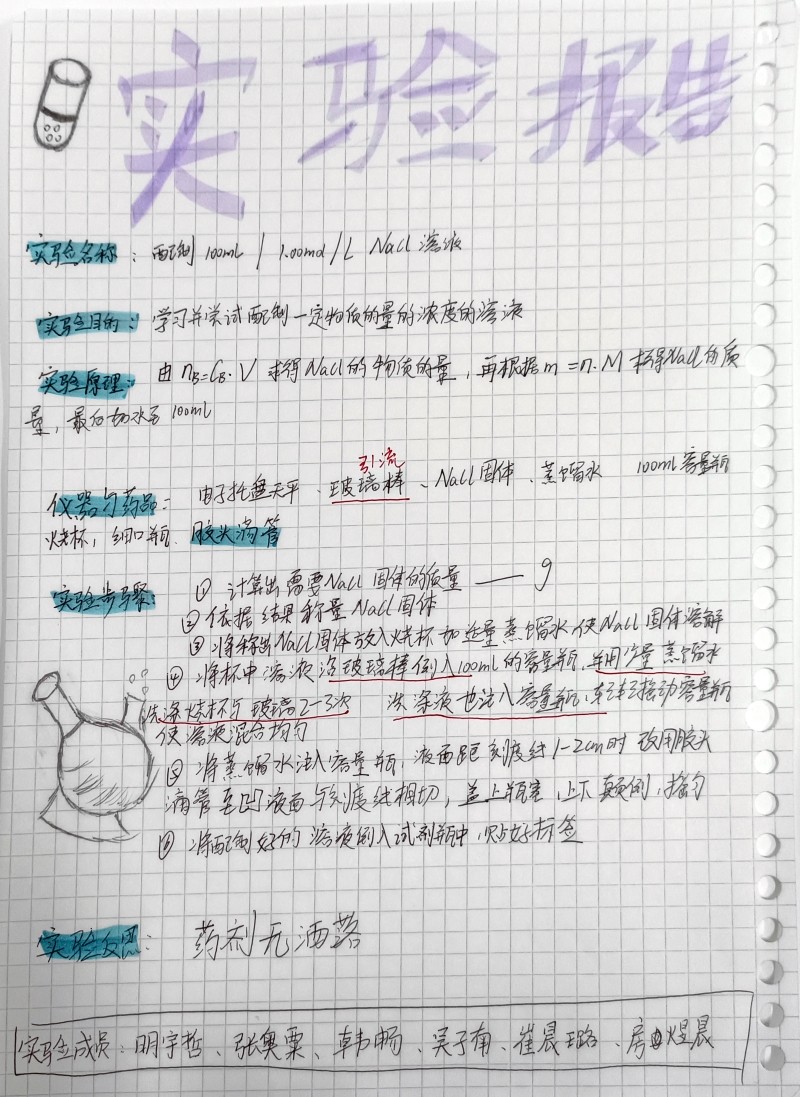 实验报告
实验名称：配制100mL 1.00mol/L NaCl 溶液
实验目的：学习并尝试配制一定物质的量的浓度的溶液
实验原理：由 nB=CB·V 求得NaCl的物质的量，再根据m=n·M 求得NaCl的质
量，最后加水至100mL
引流
仪器与药品：电子托盘天平、玻璃棒、NaCl固体、蒸馏水 100ml容量瓶
烧杯，细口瓶、胶头滴管
实验步骤：① 计算出需要NaCl固体的质量——g
② 依据结果称量NaCl固体
③ 将称出NaCl固体放入烧杯加适量蒸馏水，使NaCl固体溶解
④ 将杯中溶液沿玻璃棒倒入100ml的容量瓶，并用少量蒸馏水
洗涤烧杯与玻璃2-3次 洗涤液也注入容量瓶，轻轻摇动容量瓶
使溶液混合均匀
⑤ 将蒸馏水注入容量瓶，液面距刻度线1-2cm时改用胶头
滴管至凹液面与刻度线相切，盖上瓶塞，上下颠倒，摇匀
⑥ 将配制好的溶液倒入试剂瓶中，贴好标签
实验反思：药剂无洒落
实验成员：明宇哲、张奥粟、韩畅、吴子南、崔晨璐、房煜晨